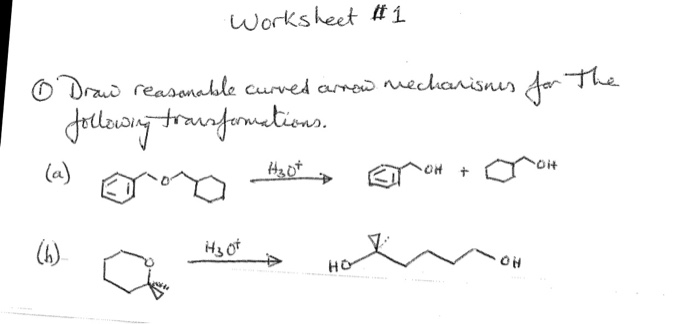 Worksheet #1
① Draw reasonable curved arrow mechanisms for the
following transformations.
(a) O H3O+ OH + OH
(b) O H3O+ HO OH